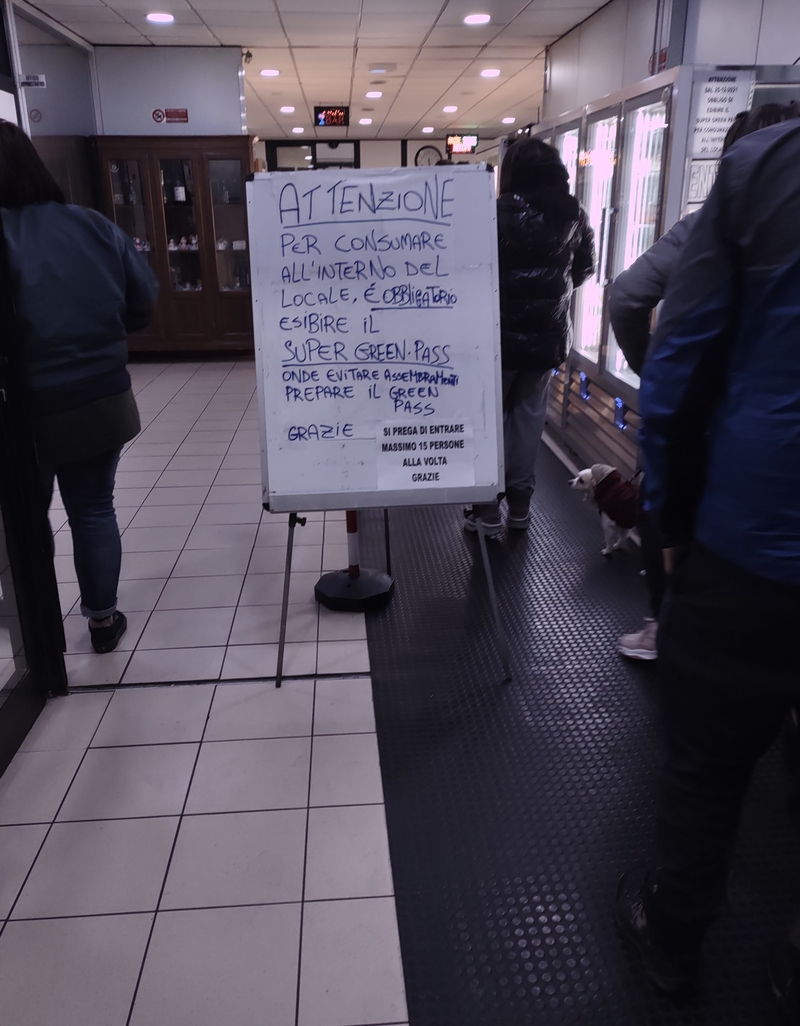 ATTENZIONE
PER CONSUMARE
ALL'INTERNO DEL
LOCALE, É OBBLIGATORIO
ESIBIRE IL
SUPER GREEN-PASS
ONDE EVITARE ASSEMBRAMENTI
PREPARE IL GREEN
PASS
GRAZIE
SI PREGA DI ENTRARE
MASSIMO 15 PERSONE
ALLA VOLTA
GRAZIE
ATTENZIONE
OBBLIGO DI
ESIBIRE IL
SUPER GREEN PASS
PER CONSUMARE
ALL'INTERNO
DEL LOCALE